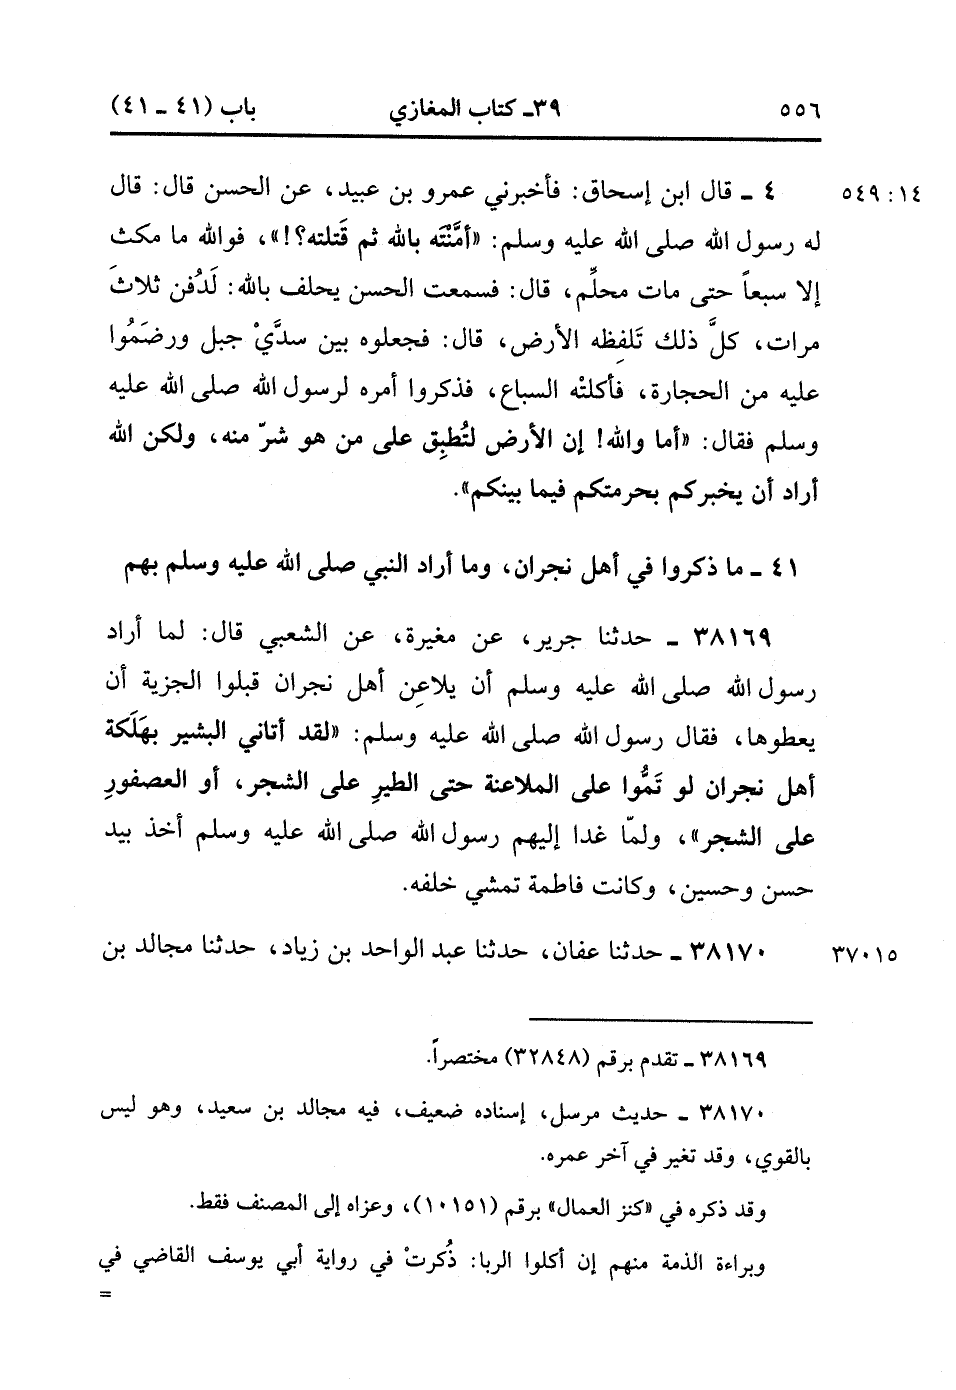 ٥٥٦ ٣٩ـ كتاب المغازي باب (٤١ - ٤١)
١٤: ٥٤٩ ٤ ـ قال ابن إسحاق: فأخبرني عمرو بن عبيد، عن الحسن قال: قال
له رسول الله صلى الله عليه وسلم: «أمَّنْتَه بالله ثم قَتلته؟!»، فوالله ما مكث
إلا سبعاً حتى مات محلِّم، قال: فسمعت الحسن يحلف بالله: لَدُفن ثلاثَ
مرات، كلَّ ذلك تَلفِظه الأرض، قال: فجعلوه بين سدَّيْ جبل ورضَمُوا
عليه من الحجارة، فأكلتْه السباع، فذكروا أمره لرسول الله صلى الله عليه
وسلم فقال: «أما والله! إن الأرض لتُطبِق على من هو شرّ منه، ولكن الله
أراد أن يخبركم بحرمتكم فيما بينكم».
٤١ ـ ما ذكروا في أهل نجران، وما أراد النبي صلى الله عليه وسلم بهم
٣٨١٦٩ ـ حدثنا جرير، عن مغيرة، عن الشعبي قال: لما أراد
رسول الله صلى الله عليه وسلم أن يلاعِن أهل نجران قبلوا الجزية أن
يعطوها، فقال رسول الله صلى الله عليه وسلم: «لقد أتاني البشير بهَلَكة
أهل نجران لو تَمُّوا على الملاعنة حتى الطيرِ على الشجر، أو العصفورِ
على الشجر»، ولمّا غدا إليهم رسول الله صلى الله عليه وسلم أخذ بيد
حسن وحسين، وكانت فاطمة تمشي خلفه.
٣٧٠١٥ ٣٨١٧٠ ـ حدثنا عفان، حدثنا عبد الواحد بن زياد، حدثنا مجالد بن
٣٨١٦٩ ـ تقدم برقم (٣٢٨٤٨) مختصراً.
٣٨١٧٠ ـ حديث مرسل، إسناده ضعيف، فيه مجالد بن سعيد، وهو ليس
بالقوي، وقد تغير في آخر عمره.
وقد ذكره في «كنز العمال» برقم (١٠١٥١)، وعزاه إلى المصنف فقط.
وبراءة الذمة منهم إن أكلوا الربا: ذُكرتْ في رواية أبي يوسف القاضي في
=